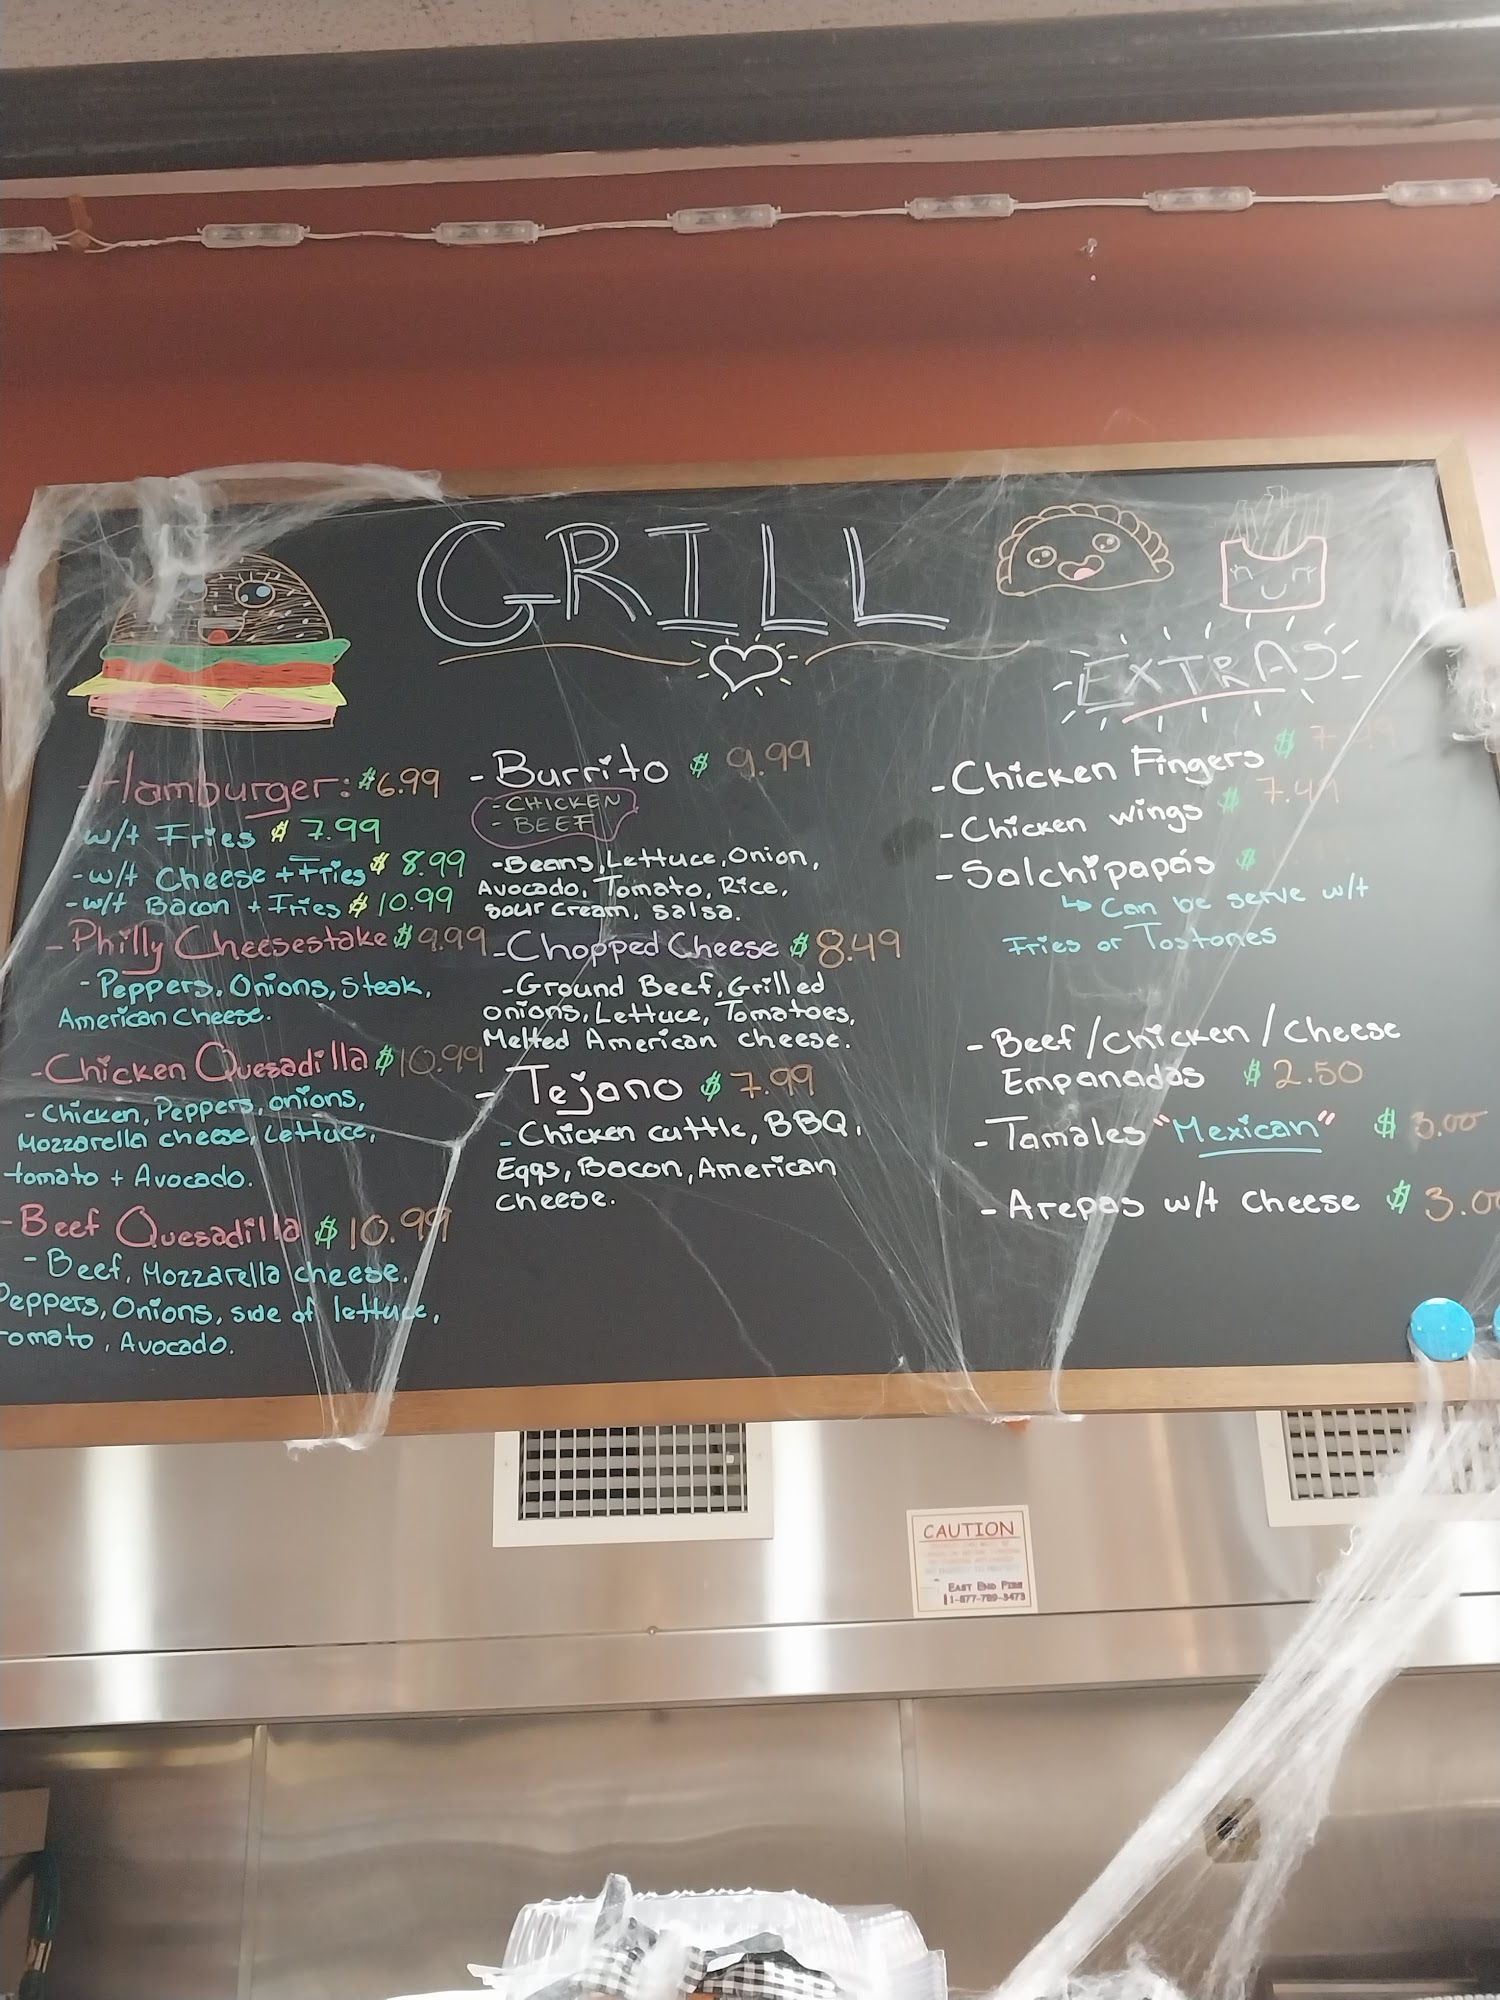 GRILL
EXTRAS
- Hamburger: $6.99
w/t Fries $ 7.99
- w/t Cheese + Fries $ 8.99
- w/t Bacon + Fries $ 10.99
- Philly Cheesestake $ 9.99
- Peppers, Onions, Steak,
American Cheese.
- Chicken Quesadilla $ 10.99
- Chicken, Peppers, onions,
Mozzarella cheese, Lettuce,
tomato + Avocado.
- Beef Quesadilla $ 10.99
- Beef, Mozzarella cheese,
Peppers, Onions, side of lettuce,
Tomato, Avocado.
- Burrito $ 9.99
- CHICKEN
- BEEF
- Beans, Lettuce, Onion,
Avocado, Tomato, Rice,
Sour Cream, Salsa.
- Chopped Cheese $ 8.49
- Ground Beef, Grilled
onions, Lettuce, Tomatoes,
Melted American cheese.
- Tejano $ 7.99
- Chicken cuttle, BBQ,
Eggs, Bacon, American
cheese.
- Chicken Fingers $
- Chicken wings $ 7.49
- Salchipapás $
↳ Can be serve w/t
Fries or Tostones
- Beef / Chicken / Cheese
Empanadas $ 2.50
- Tamales "Mexican" $ 3.00
- Arepas w/t cheese $ 3.00
CAUTION
EAST END FIRE
1-877-789-3473